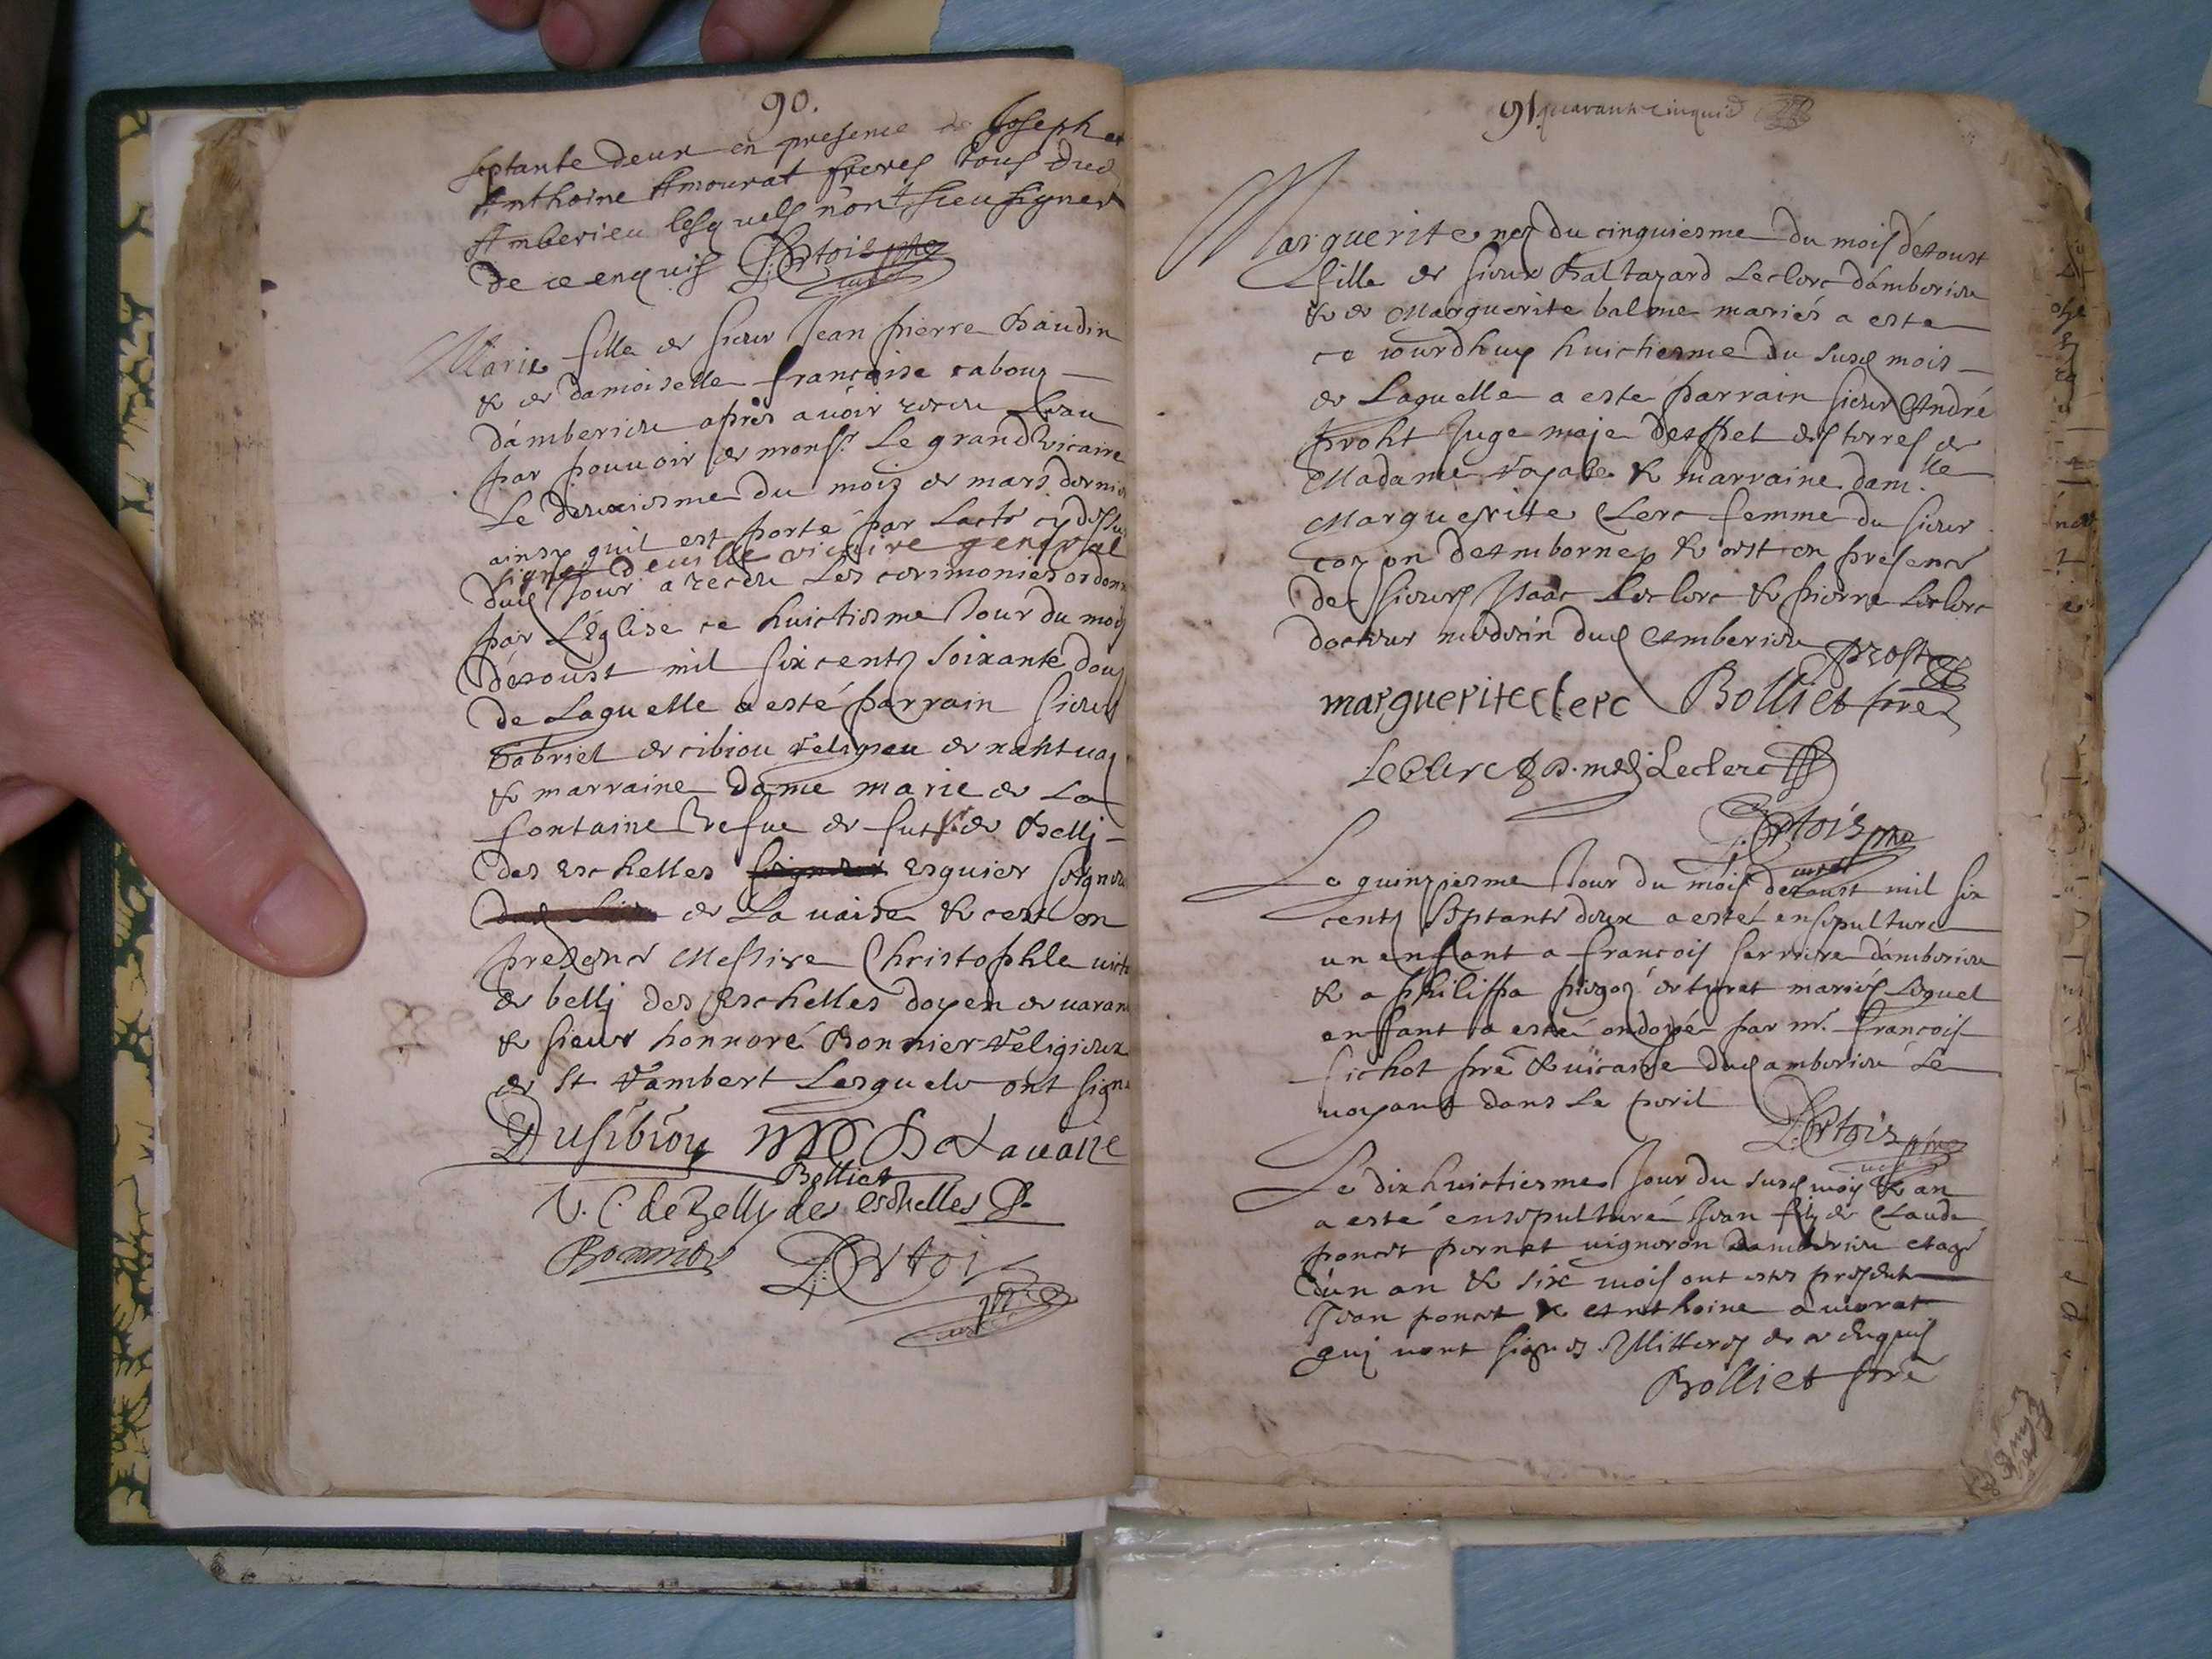 90.
septante deux en presence de Joseph et
Anthoine Amourat freres tous dud
Amberieu lesquels n'ont sceu signer
de ce enquis
Marie fille de sieur Jean pierre Baudin
& de damoiselle françoise cabouz
d'amberieu après avoir receu Leau
par pouvoir de monsr. Le grand vicaire
Le deuxiesme du mois de mars dernie
ainsy quil est porté par Lacte cydessus
signé vicaire general
dud Jour a receu Les ceremonies ordonn
par L'église ce huictiesme Jour du moy
d'aoust mil six cents soixante douz
de Laquelle a esté parrain sieur
Gabriel de cibiou de nantua
& marraine dame marie de La
fontaine vefue de fut de Belly
des Eschelles Esquier seigneu
de La vaise & cest en
presence Messire Christophle
de belly des Eschelles doyen de
& sieur honnoré Bonnier religieux
de St Rambert Lesquels ont signé
Dusibiou De Lavaise
Bolliet
V. C. de Belly des eschelles
Bonnier
91 quarante cinquie
Marguerite neé du cinquiesme du mois d'aoust
fille de sieur Baltazard Leclerc d'amberieu
& de Marguerite balme mariés a esté
ce iourdhuy huictiesme du susd mois
de Laquelle a esté parrain sieur André
prost Juge maje des terres de
Madame Royale & marraine dam.lle
Marguerite Clerc femme du sieur
cozon & cest en presence
des sieurs Isaac Leclerc & pierre Leclerc
docteur medecin dud Amberieu prost
marguerite clerc Bolliet pre
Leclerc D. med Leclerc
Le quinziesme Jour du mois d'aoust mil six
cents septante deux a esté ensepulturé
un enfant a françois d'amberieu
& a philippa mariés Lequel
enfant a esté ondoyé par mr. françois
Sichot pre & vicaire dud amberieu Le
voyant dans Le peril
Le dix huictiesme Jour du susd mois & an
a esté ensepulturé Jean fils de Claude
poncet pernet vigneron damberieu etagé
d'un an & six mois ont estés present
Jean poncet & anthoine amorat
qui nont signés de ce enquis
Bolliet pre